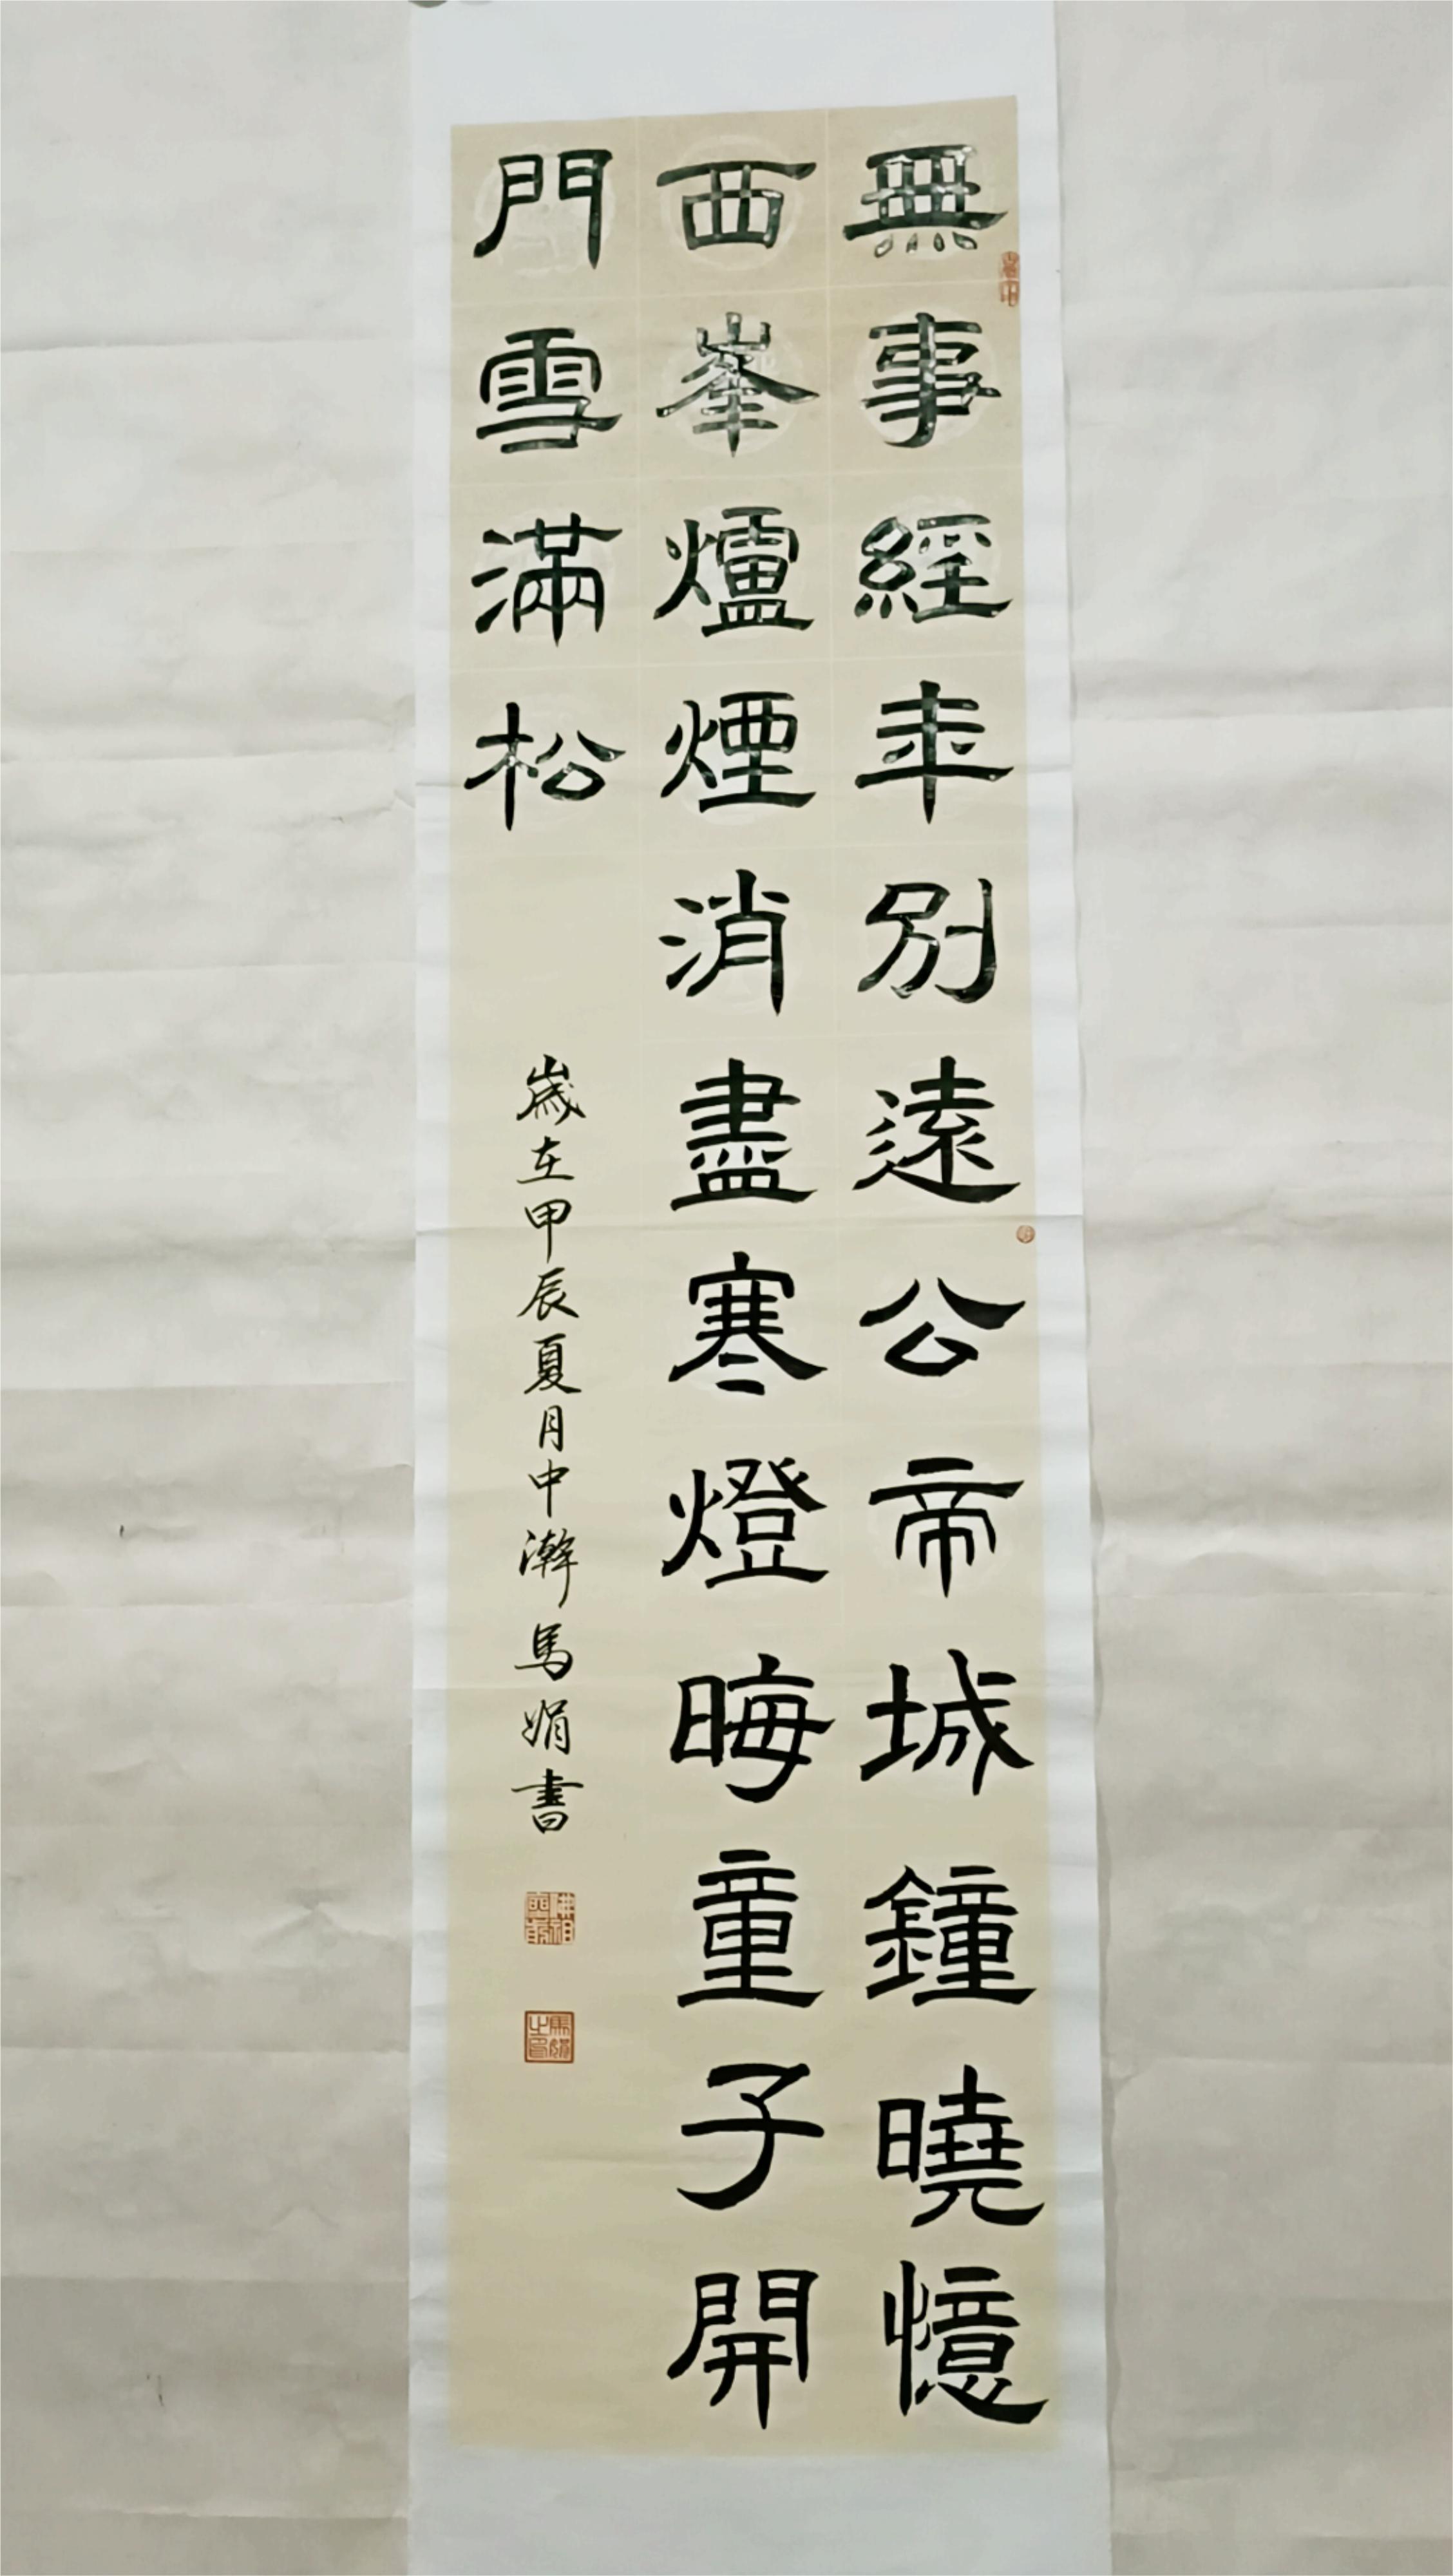 無事經年別遠公帝城鐘曉憶
西峯爐煙消盡寒燈晦童子開
門雪滿松
歲在甲辰夏月中澣馬娟書
馬娟之印